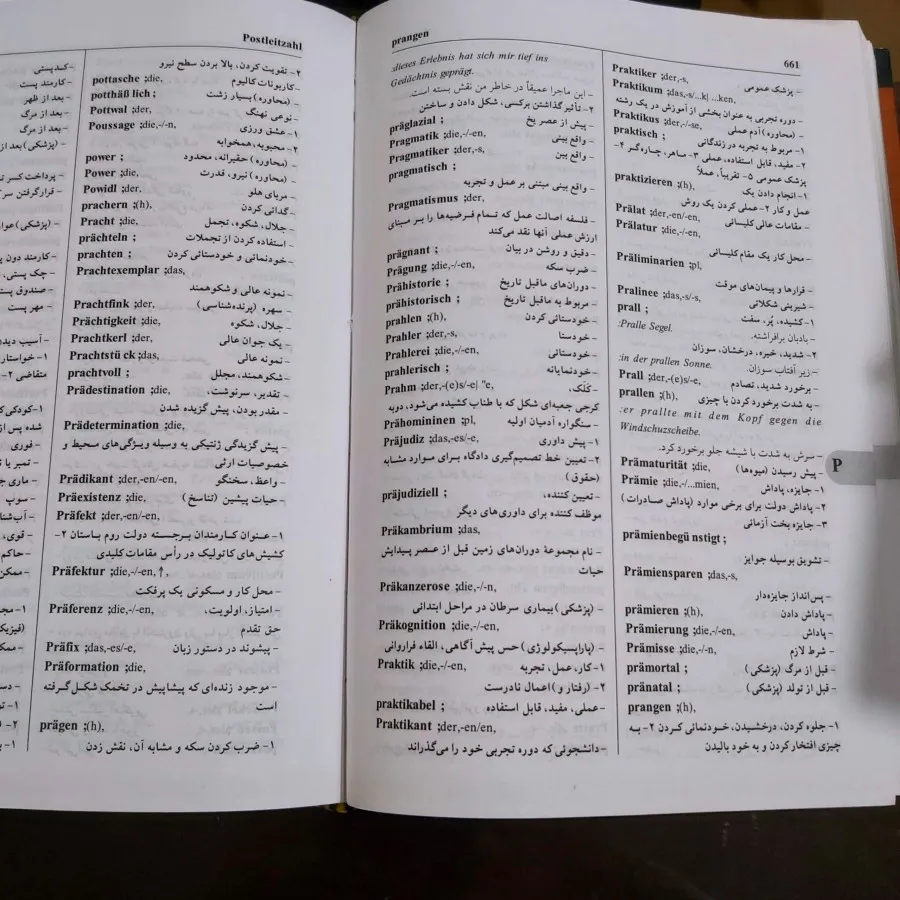 Postleitzahl
۲- تقویت کردن، بالا بردن سطح نیرو
pottasche ;die,
- کاربونات کالیوم
potthäß lich ;
- (محاوره) بسیار زشت
Pottwal ;der,
- نوعی نهنگ
Poussage ;die,-/-n,
۱- عشق ورزی
۲- محبوبه، همخوابه
power ;
- (محاوره) حقیرانه، محدود
Power ;die,
- (محاوره) نیرو، قدرت
Powidl ;der,
- مربای هلو
prachern ;(h),
- گدائی کردن
Pracht ;die,
- جلال، شکوه، تجمل
prächteln ;
- استفاده کردن از تجملات
prachten ;
- خودنمائی و خودستائی کردن
Prachtexemplar ;das,
- نمونه عالی و شکوهمند
Prachtfink ;der,
- سهره (پرنده‌شناسی)
Prächtigkeit ;die,
- جلال، شکوه
Prachtkerl ;der,
- یک جوان عالی
Prachtstü ck ;das,
- نمونه عالی
prachtvoll ;
- شکوهمند، مجلل
Prädestination ;die,
- تقدیر، سرنوشت،
- مقدر بودن، پیش گزیده شدن
Prädetermination ;die,
- پیش گزیدگی ژنتیکی به وسیله ویژگی‌های محیط و
خصوصیات ارثی
Prädikant ;der,-en/-en,
- واعظ، سخنگو
Präexistenz ;die,
- حیات پیشین (تناسخ)
Präfekt ;der,-en/-en,
۱- عنوان کارمندان برجسته دولت روم باستان ۲-
کشیش‌های کاتولیک در رأس مقامات کلیدی
Präfektur ;die,-/-en,↑,
- محل کار و مسکونی یک پرفکت
Präferenz ;die,-/-en,
- امتیاز، اولویت،
حق تقدم
Präfix ;das,-es/-e,
- پیشوند در دستور زبان
Präformation ;die,
- موجود زنده‌ای که پیشاپیش در تخمک شکل گرفته
است
prägen ;(h),
۱- ضرب کردن سکه و مشابه آن، نقش زدن
prangen
661
:dieses Erlebnis hat sich mir tief ins
Gedächtnis geprägt.
- این ماجرا عمیقاً در خاطر من نقش بسته است.
۲- تأثیر گذاشتن برکسی، شکل دادن و ساختن
präglazial ;
- پیش از عصر یخ
Pragmatik ;die,-/-en,
- واقع بینی
Pragmatiker ;der,-s,
- واقع بین
pragmatisch ;
- واقع بینی مبتنی بر عمل و تجربه
Pragmatismus ;der,
- فلسفه اصالت عمل که تمام فرضیه‌ها را بر مبنای
ارزش عملی آنها نقد می‌کند
prägnant ;
- دقیق و روشن در بیان
Prägung ;die,-/-en,
- ضرب سکه
Prähistorie ;
- دوران‌های ماقبل تاریخ
prähistorisch ;
- مربوط به ماقبل تاریخ
prahlen ;(h),
- خودستائی کردن
Prahler ;der,-s,
- خودستا
Prahlerei ;die,-/-en,
- خودستائی
prahlerisch ;
- خودنمایانه
Prahm ;der,-(e)s/-e| "e,
- کَلَک،
کرجی جعبه‌ای شکل که با طناب کشیده می‌شود، دوبه
Prähomininen ;pl,
- سنگواره آدمیان اولیه
Präjudiz ;das,-es/-e,
۱- پیش داوری
۲- تعیین خط تصمیم‌گیری دادگاه برای موارد مشابه
(حقوق)
präjudiziell ;
- تعیین کننده،
موظف کننده برای داوری‌های دیگر
Präkambrium ;das,
- نام مجموعهٔ دوران‌های زمین قبل از عصر پیدایش
حیات
Präkanzerose ;die,-/-n,
- (پزشکی) بیماری سرطان در مراحل ابتدائی
Präkognition ;die,-/-en,
- (پاراپسیکولوژی) حس پیش آگاهی، القاء فراروانی
Praktik ;die,-/-en,
۱- کار، عمل، تجربه
۲- (رفتار و) اعمال نادرست
praktikabel ;
- عملی، مفید، قابل استفاده
Praktikant ;der,-en/en,
- دانشجوئی که دوره تجربی خود را می‌گذراند
Praktiker ;der,-s,
- پزشک عمومی
Praktikum ;das,-s/...k| ...ken,
- دوره تجربی به عنوان بخشی از آموزش در یک رشته
Praktikus ;der,-/-se,
- (محاوره) آدم عملی
praktisch ;
۱- مربوط به تجربه در زندگانی
۲- مفید، قابل استفاده، عملی ۳- ماهر، چاره‌گر ۴-
پزشک عمومی ۵- تقریباً، عملاً
praktizieren ;(h),
۱- انجام دادن یک
عمل و کار ۲- عملی کردن یک روش
Prälat ;der,-en/-en,
- مقامات عالی کلیسائی
Prälatur ;die,-/-en,
- محل کار یک مقام کلیسائی
Präliminarien ;pl,
- قرارها و پیمان‌های موقت
Pralinee ;das,-s/-s,
- شیرینی شکلاتی
prall ;
۱- کشیده، پُر، سفت
:Pralle Segel.
- بادبان برافراشته.
۲- شدید، خیره، درخشان، سوزان
:in der prallen Sonne.
- زیر آفتاب سوزان.
Prall ;der,-(e)s/-e,
- برخورد شدید، تصادم
prallen ;(h),
- به شدت برخورد کردن با چیزی
:er prallte mit dem Kopf gegen die
Windschuzscheibe.
- سرش به شدت با شیشه جلو برخورد کرد.
Prämaturität ;die,
- پیش رسیدن (میوه‌ها)
Prämie ;die,-/...mien,
۱- جایزه، پاداش
۲- پاداش دولت برای برخی موارد (پاداش صادرات)
۳- جایزه بخت آزمائی
prämienbegü nstigt ;
- تشویق بوسیله جوایز
Prämiensparen ;das,-s,
- پس‌انداز جایزه‌دار
prämieren ;(h),
- پاداش دادن
Prämierung ;die,-/-en,
- پاداش
Prämisse ;die,-/-n,
- شرط لازم
prämortal ;
- قبل از مرگ (پزشکی)
pränatal ;
- قبل از تولد (پزشکی)
prangen ;(h),
۱- جلوه کردن، درخشیدن، خودنمائی کردن ۲- به
چیزی افتخار کردن و به خود بالیدن
P